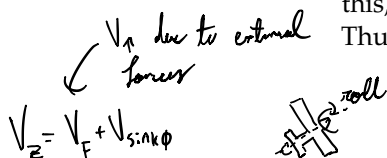 this,
V↑ due to external
Thu
forces
V_z = V_F + V_sinkϕ
roll